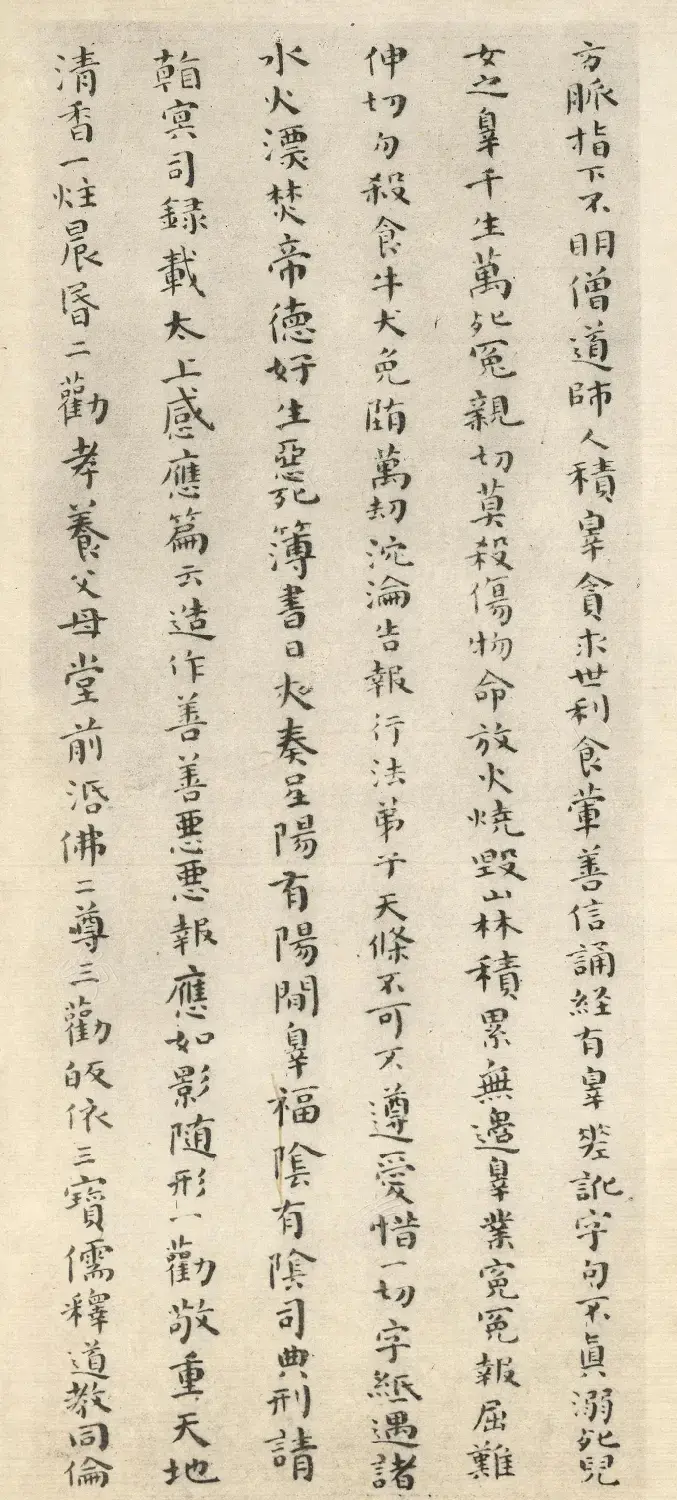 方脈指下不明僧道師人積辠貪求世利食葷善信誦経有辠差訛字句不真溺死兒
女之辠千生萬死冤親切莫殺傷物命放火燒毀山林積累無邉辠業寃冤報屈難
伸切勿殺食牛犬免墮萬刧沉淪告報行法弟子天條不可不遵愛惜一切字紙遇諸
水火漂焚帝德好生惡死簿書日夜奏呈陽有陽間辠福陰有陰司典刑請
㸔㝠司録載太上感應篇云造作善善悪悪報應如影随形一勸敬重天地
清香一炷晨昏二勸孝養父母堂前活佛二尊三勸皈依三寳儒釋道教同倫